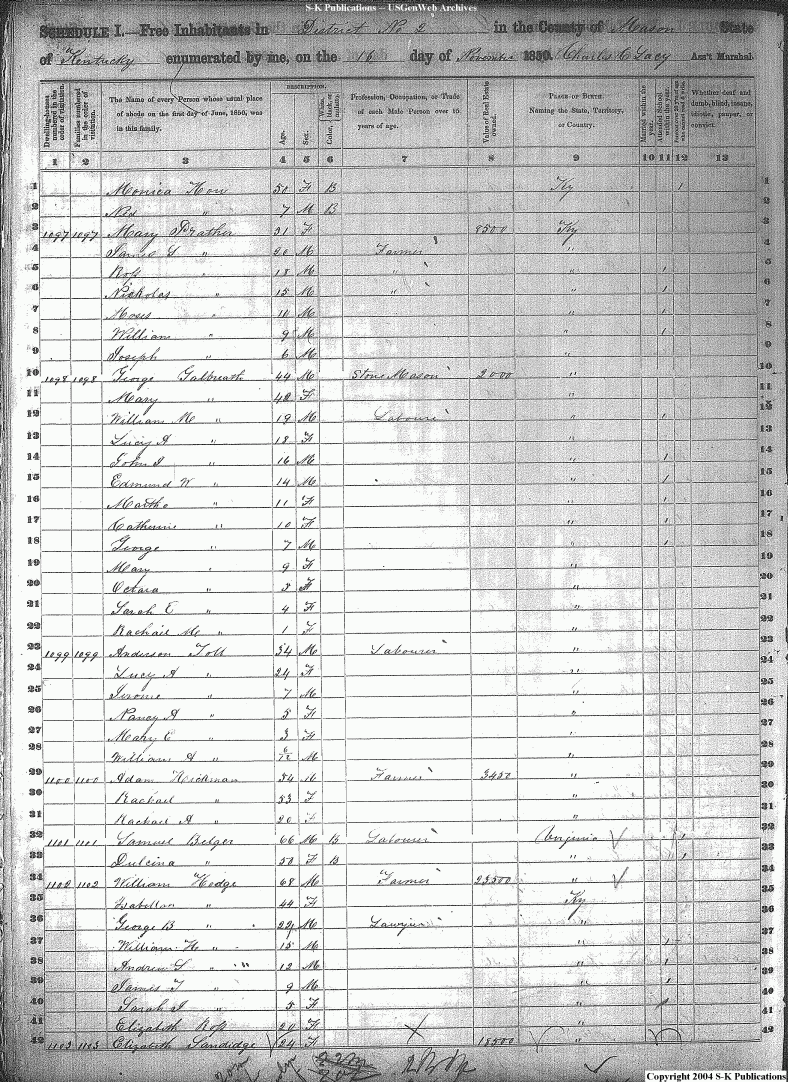 S-K Publications – USGenWeb Archives
SCHEDULE I.—Free Inhabitants in District No 2 in the County of Mason State
of Kentucky enumerated by me, on the 16 day of November 1850. Charles C Lacy Ass't Marshal.
Dwelling-houses numbered in the order of visitation.
Families numbered in the order of visitation.
The Name of every Person whose usual place of abode on the first day of June, 1850, was in this family.
DESCRIPTION.
Age.
Sex.
Color, White, black, or mulatto.
Profession, Occupation, or Trade of each Male Person over 15 years of age.
Value of Real Estate owned.
PLACE OF BIRTH. Naming the State, Territory, or Country.
Married within the year.
Attended School within the year.
Whether deaf and dumb, blind, insane, idiotic, pauper, or convict.
1 2 3 4 5 6 7 8 9 10 11 12 13
1 Monica 50 F B Ky 1 1
2 " 7 M B 2
3 1097 1097 Mary Prather 31 F 8500 Ky 3
4 James S " 20 M Farmer " 4
5 Ross " 18 M " " 1 5
6 Nickolas " 15 M " " 1 6
7 Moses " 10 M " 1 7
8 William " 9 M " 1 8
9 Joseph " 6 M " 9
10 1098 1098 George Galbreath 44 M Stone Mason 2000 " 10
11 Mary " 42 F " 11
12 William M " 19 M Labourer " 1 12
13 Lucy A " 18 F " 13
14 John I " 16 M " 1 14
15 Edmund W " 14 M " 1 15
16 Martha " 11 F " 1 16
17 Catherine " 10 F " 1 17
18 George " 7 M " 1 18
19 Mary " 9 F " 19
20 Octava " 3 F " 20
21 Sarah E " 4 F " 21
22 Rachael M " 1 F " 22
23 1099 1099 Anderson Toll 34 M Labourer " 23
24 Lucy A " 24 F " 24
25 Jerome " 7 M " 25
26 Nancy A " 5 F " 26
27 Mary E " 3 F " 27
28 William A " 6/12 M " 28
29 1100 1100 Adam Hickman 54 M Farmer 3450 " 29
30 Rachael " 53 F " 30
31 Rachael A " 20 F " 31
32 1101 1101 Samuel Belger 66 M B Labourer Virginia 1 32
33 Dulcina " 50 F B " 1 33
34 1102 1102 William Hodge 68 M Farmer 23500 " 34
35 Isabellan " 44 F Ky 35
36 George B " 22 M Lawyer " 36
37 William H " 15 M " 1 37
38 Andrew S " 12 M " 1 38
39 James T " 9 M " 1 39
40 Sarah I " 5 F " 1 40
41 Elizabeth Ross 20 F " 41
42 1103 1103 Elizabeth Sandidge 24 F 18500 " 42
Copyright 2004 S-K Publications